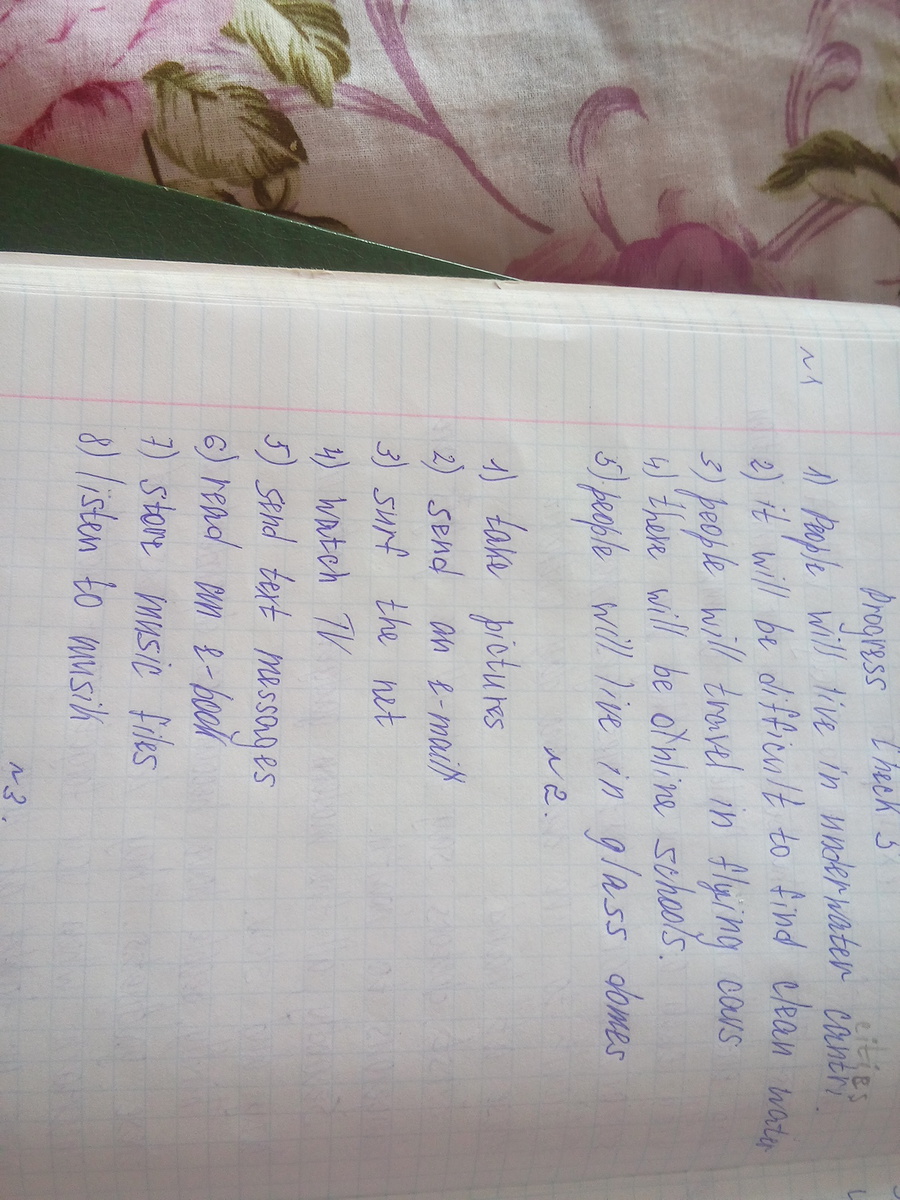 Progress Check 5
№1
cities
1) People will live in underwater cantri.
2) it will be difficult to find clean water
3) people will travel in flying cars
4) there will be online schools.
5) people will live in glass domes
№2.
1) take pictures
2) send an e-mail
3) surf the net
4) watch TV
5) send text messages
6) read an e-book
7) store music files
8) listen to musik
№3.